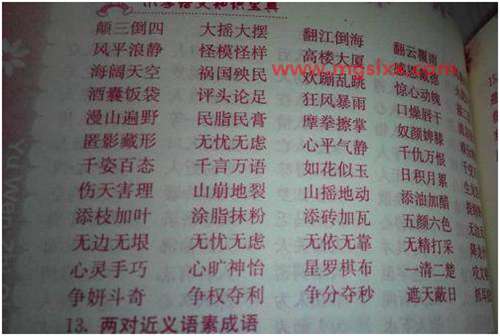 小学语文知识宝典
颠三倒四 大摇大摆 翻江倒海 翻云覆雨
风平浪静 怪模怪样 高楼大厦
www.mgslxs.com
海阔天空 祸国殃民 欢蹦乱跳 惊心动魄
酒囊饭袋 评头论足 狂风暴雨 口燥唇干
漫山遍野 民脂民膏 摩拳擦掌 奴颜婢膝
匿影藏形 无忧无虑 心平气静 千仇万恨
千姿百态 千言万语 如花似玉 日积月累
伤天害理 山崩地裂 山摇地动 添油加醋
添枝加叶 涂脂抹粉 添砖加瓦 五颜六色
无边无垠 无忧无虑 无依无靠 无精打采
心灵手巧 心旷神怡 星罗棋布 一清二楚
争妍斗奇 争权夺利 争分夺秒 遮天蔽日
13. 两对近义语素成语